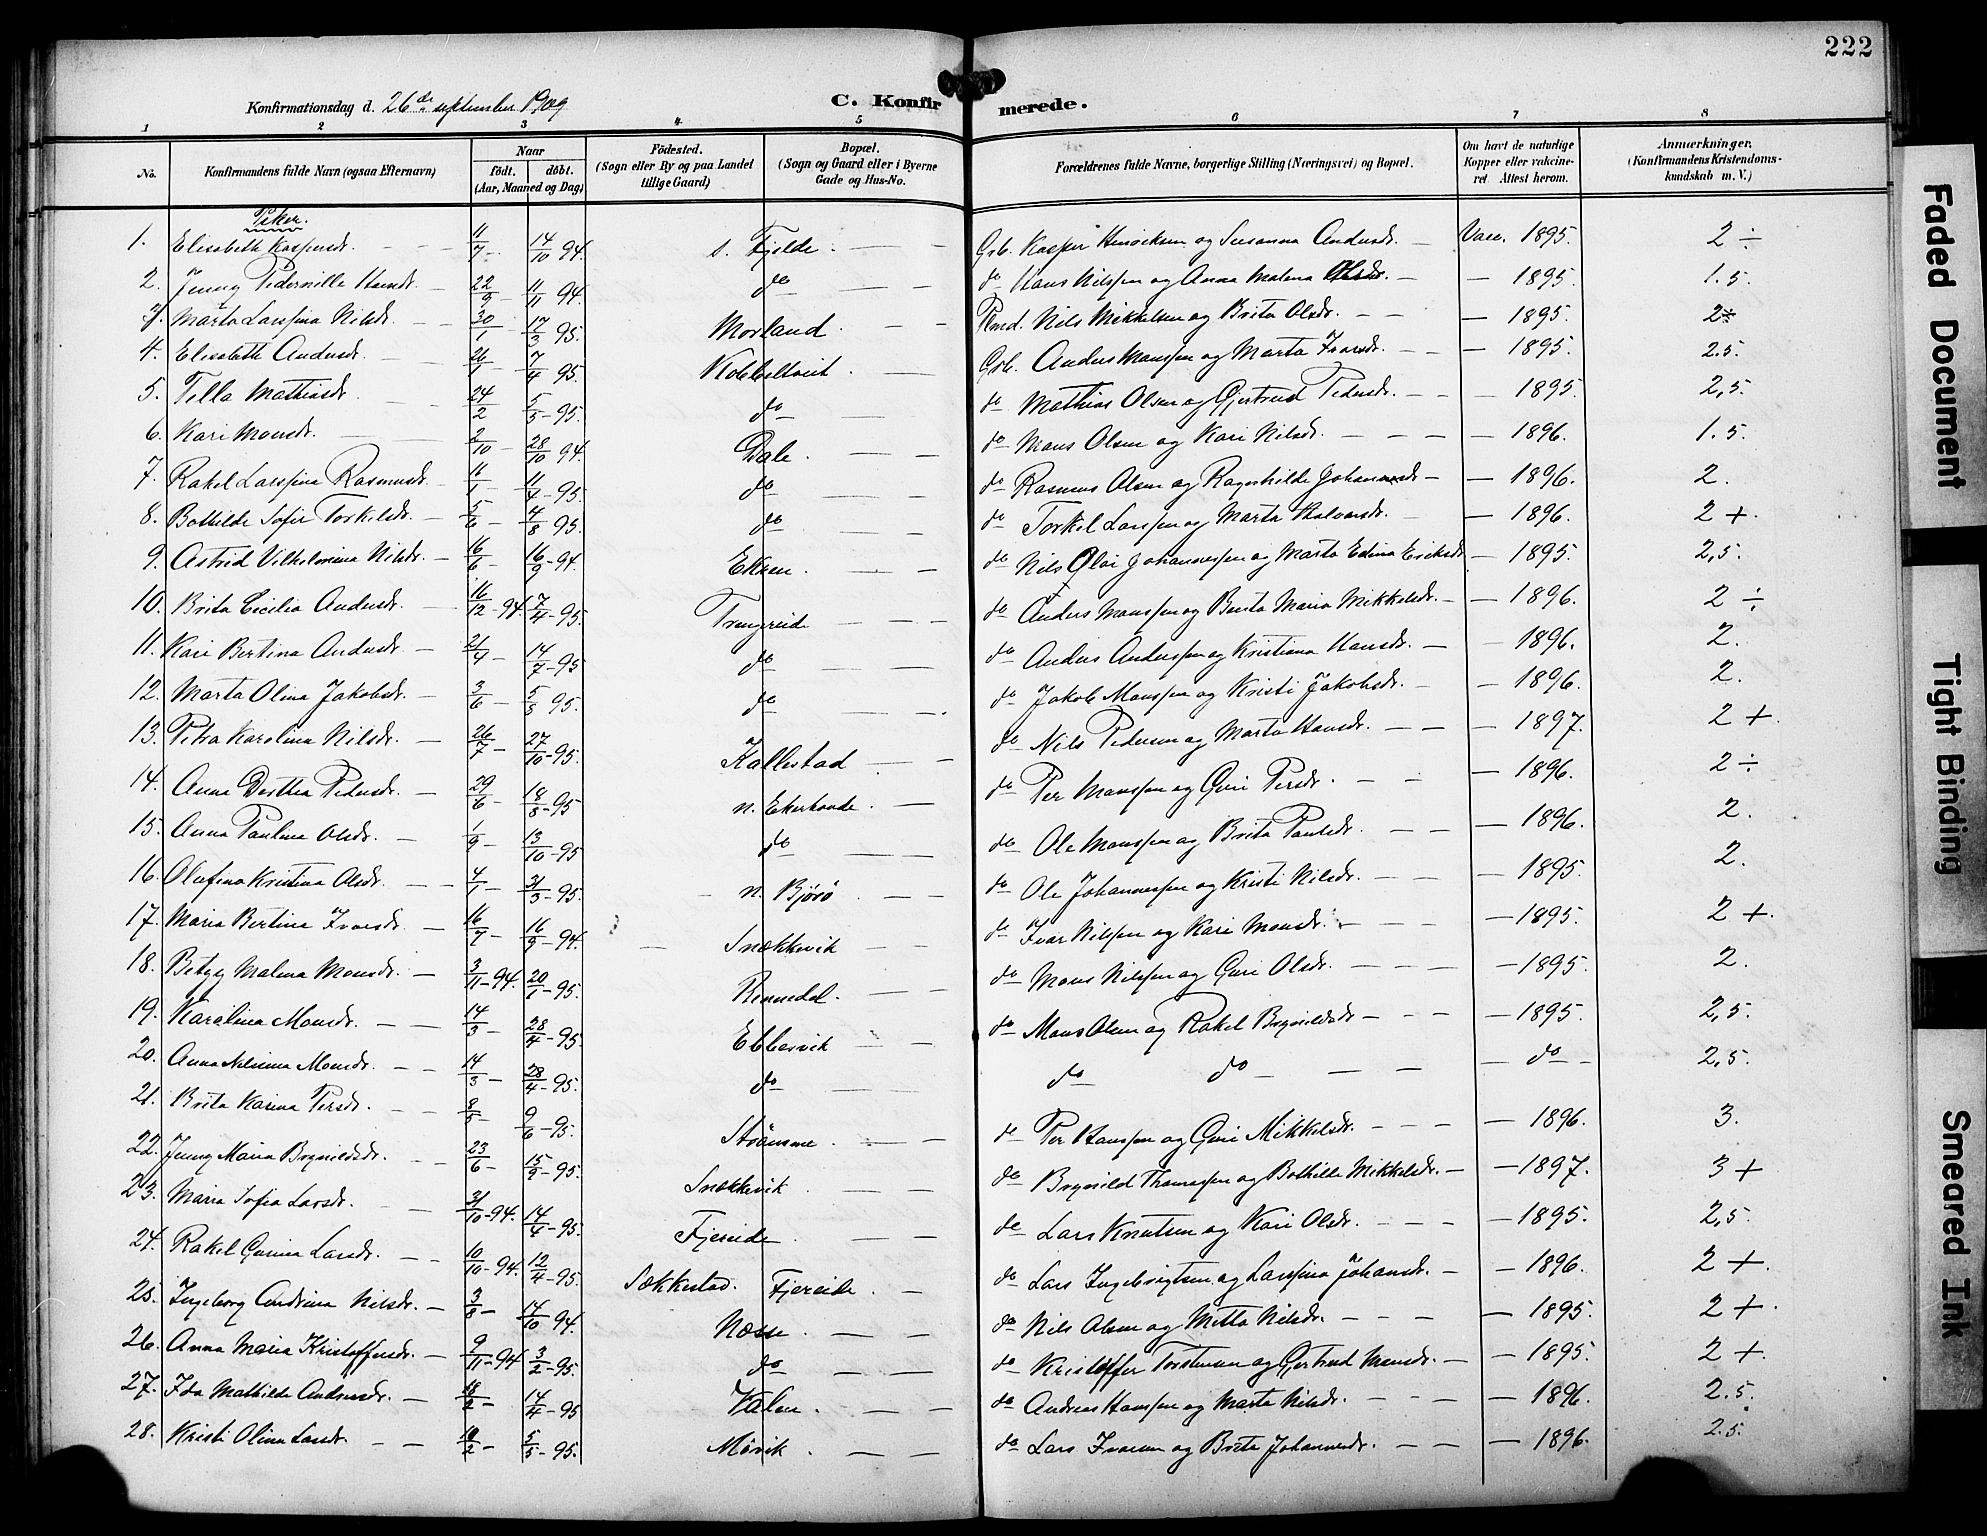 222
Konfirmationsdag d. 26de september 1909
C. Konfirmerede.
1 2 3 4 5 6 7 8
No. Konfirmandens fulde Navn (ogsaa Efternavn) Naar födt. döbt. (Aar, Maaned og Dag) Födested. (Sogn eller By og paa Landet tillige Gaard) Bopæl. (Sogn og Gaard eller i Byerne Gade og Hus-No. Forældrenes fulde Navne, borgerlige Stilling (Næringsvei) og Bopæl. Om havt de naturlige Kopper eller vakcineret. Attest herom. Anmærkninger. (Konfirmandens Kristendomskundskab m. V.)
Piker.
1. Elisabeth Kaspersdr. 11/7 — 14/10 94. s. Fjelde — Gsb. Kasper Henriksen og Susanna Andersdr. — Vacc. 1895. 2 ÷
2. Jenny Pedernille Hansdr. — 22/9 — 11/11 94. do — do Hans Nilssen og Anna Malena Olsdr. — 1895. 1.5.
3. Marta Larssina Nilsdr. 30/1 — 17/3 95. Morland. — Nils Mikkelsen og Brita Olsdr. — 1895. 2÷
4. Elisabeth Andersdr. 26/1 — 7/4 95. Kobbeltveit. — Gsb. Anders Monssen og Marta Ivarsdr. — 1895. 2.5.
5. Tilla Mathiasdr. 24/2 — 5/5 - 95. do — do Mathias Olsen og Gjertrud Pedersdr. — 1895. 2,5.
6. Kari Monsdr. 2/10 — 28/10 94. Dale. — do Mons Olsen og Kari Nilsdr. — 1896. 1.5.
7. Rakel Larssina Rasmusdr. 16/1 — 11/4 - 95. do — do Rasmus Olsen og Ragnhilde Johannesdr — 1896. 2.
8. Bothilde Sofie Torkelsdr. — 5/6 — 4/8 95. do — do Torkel Larssen og Marta Halvorsdr. — 1896. 2 +
9. Astrid Vilhelmina Nilsdr. — 16/6 — 16/9 - 94. Ekren. — do Nils Olai Johannessen og Marta Edina Eriksdr — 1895. 2,5.
10. Brita Cecilia Andersdr. — 16/12 - 94. 7/4 - 95. Trengereide — do Anders Monssen og Berta Maria Mikkelsdr. — 1896. 2 ÷
11. Kari Bertina Andersdr. — 21/4 — 14/7 - 95 do — do Anders Anderssen og Kristiana Hansdr. — 1896. 2.
12. Marta Olina Jakobsdr. — 3/6 — 5/8 95. do — do Jakob Monssen og Kristi Jakobsdr. — 1896. 2.
13. Petra Karolina Nilsdr. — 26/7 — 27/10 - 95. Kallestad — do Nils Pedersen og Marta Hansdr. — 1897. 2 +.
14. Anna Dorthea Pedersdr. — 29/6 — 18/8 - 95 n. Ekerhovde. — do Per Monssen og Guri Persdr. — 1896. 2 ÷
15. Anna Paulina Olsdr. — 1/9 — 13/10 - 95 do — do Ole Monssen og Brita Paulsdr. — 1896. 2.
16. Olufina Kristina Olsdr. — 4/1 — 31/3 - 95. n. Bjorö — do Ole Johannessen og Kristi Nilsdr. — 1895. 2.
17. Maria Bertina Ivarsdr. — 16/7 — 16/9 - 94. Snekkevik — do Ivar Nilssen og Kari Monsdr. — 1895. 2 +.
18. Betzy Malena Monsdr. — 3/11 - 94. 20/1 - 95. Rennedal. — do Mons Nilssen og Guri Olsdr. — 1895. 2.
19. Karolina Monsdr. — 14/3 — 28/4 - 95. Ebbesvik — do Mons Olsen og Rakel Brynildsdr — 1895. 2,5.
20. Anna Nilsina Monsdr. — 14/3 — 28/4 - 95. do — do do — do — 2,5.
21. Brita Karina Persdr. — 8/5 — 9/6 - 95. Strömme. — do Per Hanssen og Guri Mikkelsdr. — 1896. 3.
22. Jenny Maria Brynildsdr. — 23/6 — 15/9 - 95. Snekkevik — do Brynild Thomassen og Bothilde Mikkelsdr. — 1897. 3 +
23. Maria Sofia Larsdr. — 31/10 - 94. 14/4 - 95. Fjereide — do Lars Knutsen og Kari Olsdr. — 1895. 2,5.
24. Rakel Gurina Larsdr. — 10/10 - 94. 12/4 - 95. Sækkestad. Fjereide — do Lars Ingebrigtsen og Larssina Johansdr. — 1896. 2 +.
25. Ingeborg Andrina Nilsdr. — 3/8 — 14/10 94. Næsse. — do Nils Olsen og Metta Nilsdr. — 1895. 2 +.
26. Anna Maria Kristoffersdr. — 9/11 - 94 3/2 - 95. do — do Kristoffer Torstensen og Gjertrud Monsdr. — 1895. 2 +.
27. Ida Mathilde Andreasdr. — 18/2 — 14/4 - 95 Valen. — do Andreas Hanssen og Marta Nilsdr. — 1896. 2.5.
28. Kristi Olina Larsdr. — 10/2 — 5/5 - 95. Mövik — do Lars Ivarsen og Brita Johannesdr. — 1896. 2.5.
Faded Document
Tight Binding
Smeared Ink